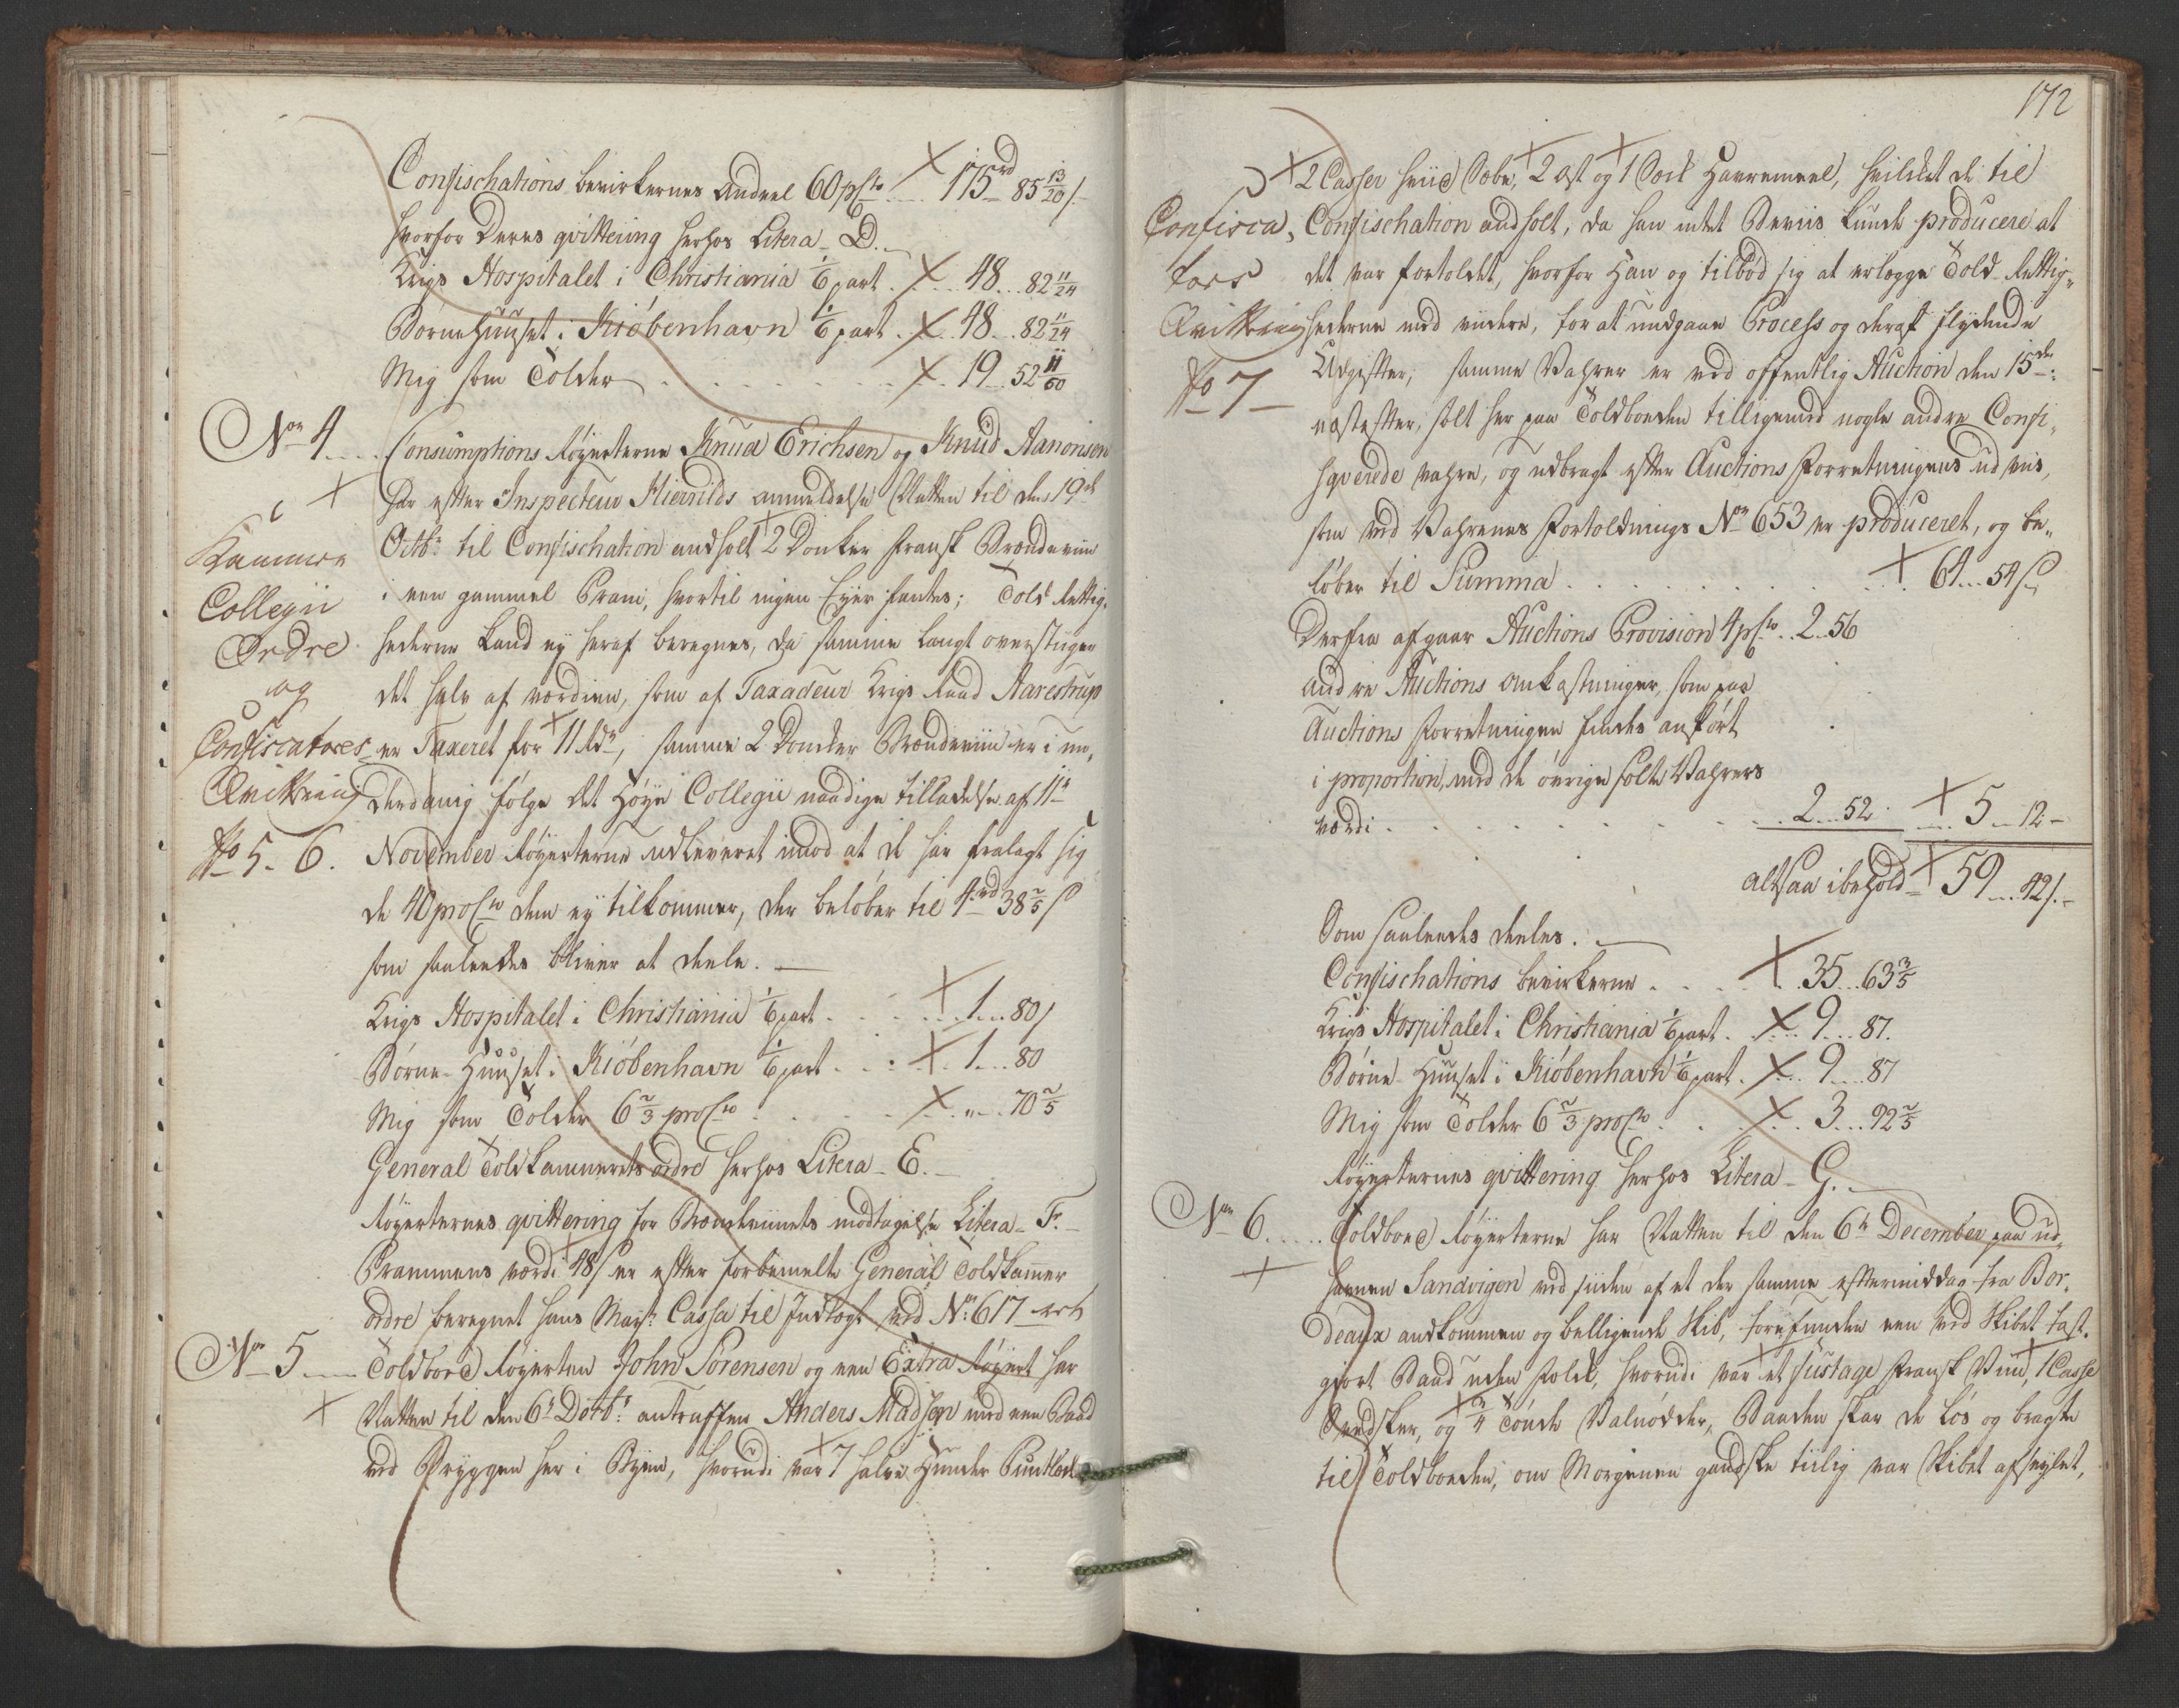 Confischations bevirkernes Andeel 60 pCto .... 175rd 85 13/20 s
hvorfor Deres qvittering herhos Litera D.
Krigs Hospitalet i Christiania 1/6 part ..... 48 ... 82 11/24
Børnehuuset i Kiøbenhavn 1/6 part ... 48 ... 82 11/24
Mig som Tolder ........ 19 52 11/60
Non 4 .... Consumptions Røyerterne Knud Erichsen og Knud Aanonsen
har efter Inspecteur Hiervilds anmeldelse Natten til den 19de
Octbr til Confischation andholt 2 Donker fransk Brændeviin
i een gammel Pram, hvortil ingen Eyer fantes; Told Rettig-
hederne kand ey heraf beregnes, da samme langt overstiger
det halve af værdien, som af Taxadeur Krigs Raad Aarestrup
er Taxeret for 11 Rdr, samme 2 Donker Brændeviin er i un-
derdanig følge det Høye Collegii naadige tilladelse af 11te
November Røyerterne udleveret imod at de har fralagt sig
de 40 proCto dem ey tilkommer, der beløber til 4rd 38 2/5 s
som saaledes bliver at deele. —
Krigs Hospitalet i Christiania 1/6 part ...... 1 ... 80 s
Børne-Huuset i Kiøbenhavn 1/6 part ..... 1 ... 80
Mig som Tolder 6 2/3 proCto ...... " ... 70 2/5
General Toldkammerets ordre herhos Litera E. —
Røyerternes qvittering for Brændeviinets modtagelse Litera F. —
Prammens værdi 48 s er efter forbemelte General Toldkamer
ordre beregnet hans Mayts Cassa til Indtægt ved No 617
Non 5 .... Toldboed Røyerten John Sørensen og een Extra Røyert har
Natten til den 6te Dectbr antruffen Anders Madsen med een Baad
ved Bryggen her i Byen, hvorudi var 7 halve Hunder
Kammer
Collegii
Ordre
og
Confiscatores
Qvittering
No 5. 6.
172
2 Casser hviid Sæbe, 2 Ost og 1 Sæk Havremeel, hvilket de til
Confischation andholt, da han intet Beviis kunde producere at
det var fortoldet, hvorfor Han og tilbød sig at erlægge Told Rettig-
hederne med videre, for at undgaae Process og deraf flydende
Udgifter; samme Vahrer er ved offentlig Auction den 15de
næstefter, solt her paa Toldboeden tilligemed nogle andre Confi-
sqverede vahre, og udbragt efter Auctions Forretningens udviis,
som ved Vahrenes Fortoldnings Non 653 er produceret, og be-
løber til Summa ........ 64 ... 54 s
Derfra afgaar Auctions Provision 4 pCto .. 2 .. 56
andre Auctions omkostninger, som paa
Auctions Forretningen findes anført
i proportion med de øvrige solte Vahrers
værdi ........ 2 ... 52 .... 5 ... 12 —
altsaa i behold 59 ... 42 s —
Som saaledes deeles. —
Confischations bevirkerne ..... 35 ... 63 3/5
Krigs Hospitalet i Christiania 1/6 part ... 9 ... 87.
Børne-Huuset i Kiøbenhavn 1/6 part .... 9 .... 87
Mig som Tolder 6 2/3 proCto ...... 3 ... 92 2/5
Røyerternes qvittering herhos Litera G. —
Non 6 ..... Toldboed Røyerterne har Natten til den 6te December paa ud-
havnen Sandvigen ved siiden af et der samme eftermiddag fra Bor-
deaux andkommen og belligende Skib, forefunden een ved Skibet fast-
giort Baad uden Folk, hvorudi var et fustage fransk Viin, 1 Casse
og 1/4 Tønde Valnødder, Baaden skar de løs og bragte
til Toldboeden, om Morgenen gandske tiilig var Skibet afseylet,
Confisca-
tors
Qvittering
No 7